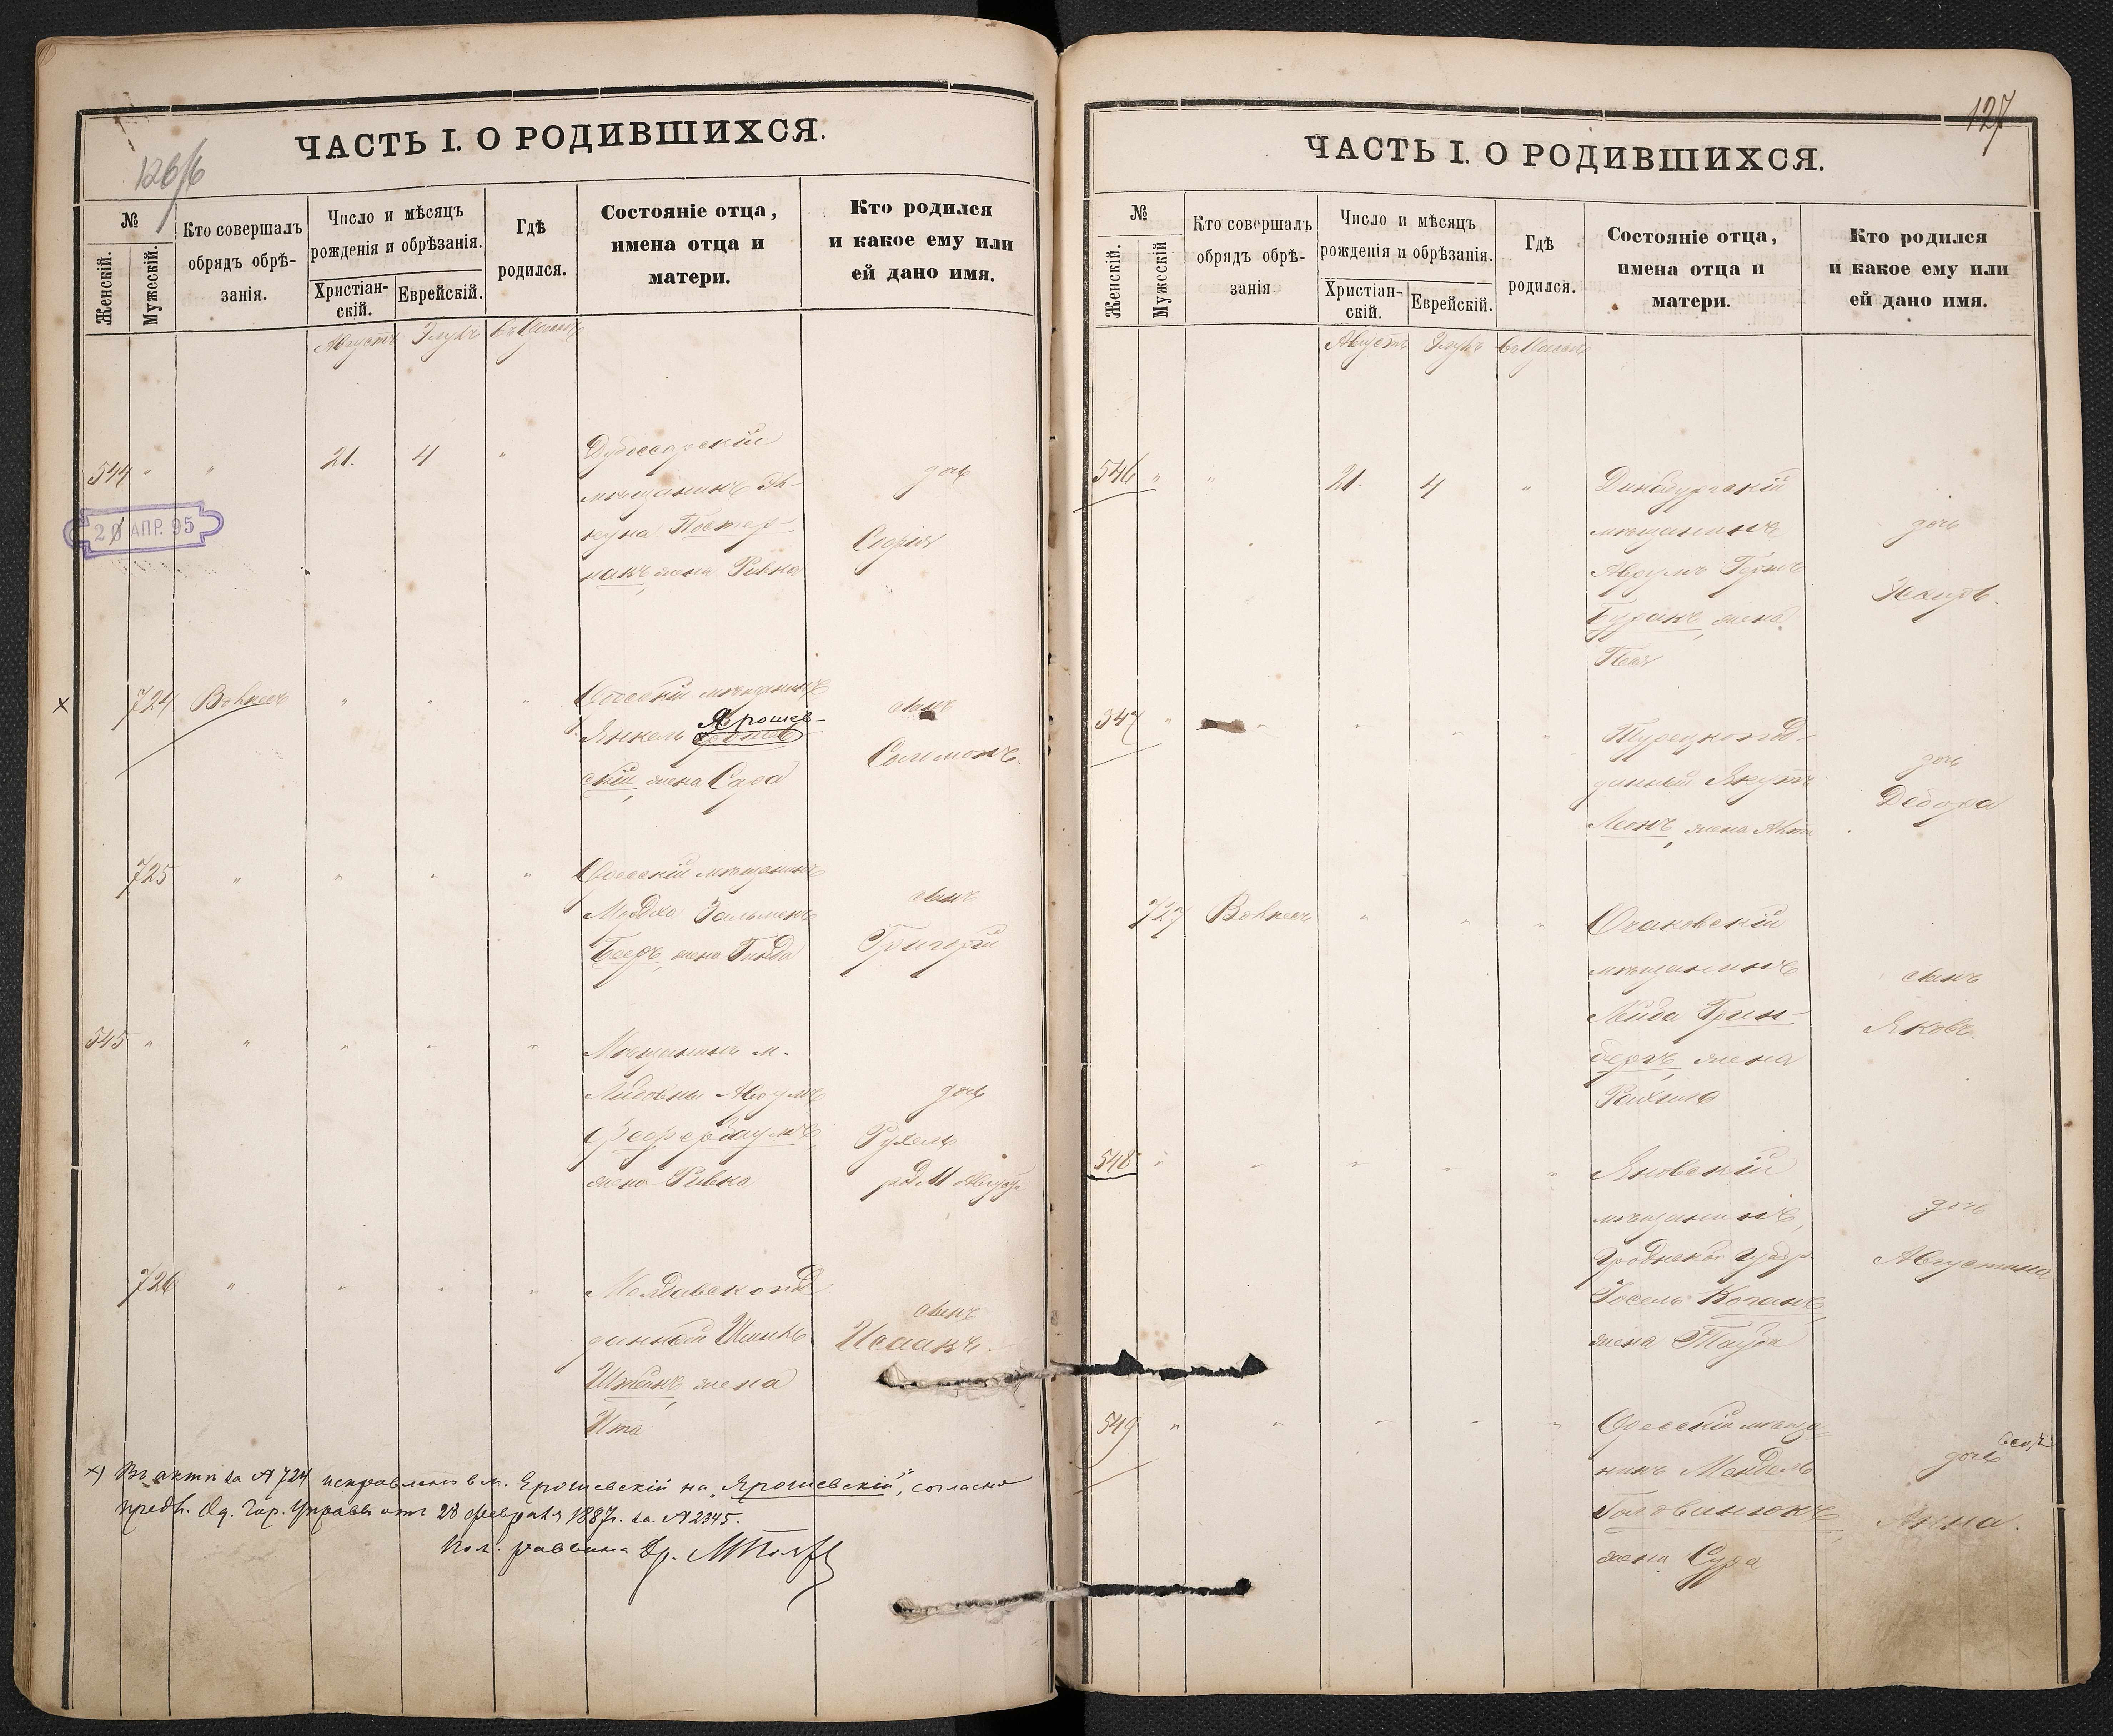 126/б
ЧАСТЬ I. О РОДИВШИХСЯ.
№
Женскій.
Мужескій.
Кто совершалъ
обрядъ обрѣ-
занія.
Число и мѣсяцъ
рожденія и обрѣзанія.
Христіан-
скій.
Еврейскій.
Гдѣ
родился.
Состояніе отца,
имена отца и
матери.
Кто родился
и какое ему или
ей дано имя.
Августъ Элулъ
544 " " 21. 4 "
Дубоссарскій
мѣщанинъ
Постер-
накъ, жена Ривка
дочь
Софія
20 АПР. 95
х 724 " " "
Одесскій мѣщанинъ
Янкель Ярошев-
скій, жена Сара
сынъ
Соломонъ.
725 " " " " "
Одесскій мѣщанинъ
Мордко Зальманъ
Бееръ, жена Гинда
сынъ
Григорій
545 " " " " " "
Мѣщанинъ м.
Аврумъ
жена Ривка
дочь
Рухель
726 " " " " "
Молдавскопод-
данный
Штейнъ, жена
Ита
сынъ
Исаакъ.
х) Въ актѣ за № 724 исправлено вм. Ерошевскій на „Ярошевскій", согласно
предп. Од. Гор. Управы отъ 28 февраля 1887г. за № 2345.
Пом. раввина Др.
127
ЧАСТЬ I. О РОДИВШИХСЯ.
№
Женскій.
Мужескій
Кто совершалъ
обрядъ обрѣ-
занія
Число и мѣсяцъ
рожденія и обрѣзанія.
Христіан-
скій.
Еврейскій.
Гдѣ
родился.
Состояніе отца,
имена отца и
матери.
Кто родился
и какое ему или
ей дано имя.
Августъ Элулъ
546 " " 21. 4 "
Динабургскій
мѣщанинъ
Аврумъ
Буракъ, жена
Песя
дочь
547 " " " " "
Турецкопод-
данный
Леонъ, жена
дочь
Дебора
727 " " "
Очаковскій
мѣщанинъ
Лейба Грин-
бергъ, жена
сынъ
Яковъ.
548 " " " " "
Яновскій
мѣщанинъ,
Гродненской губер.
Іосель Коганъ,
жена Тауба
дочь
Августина
549 " " " " "
Одесскій мѣща-
нинъ Мендель
Головинюкъ,
жена Сура
дочь
Анна.